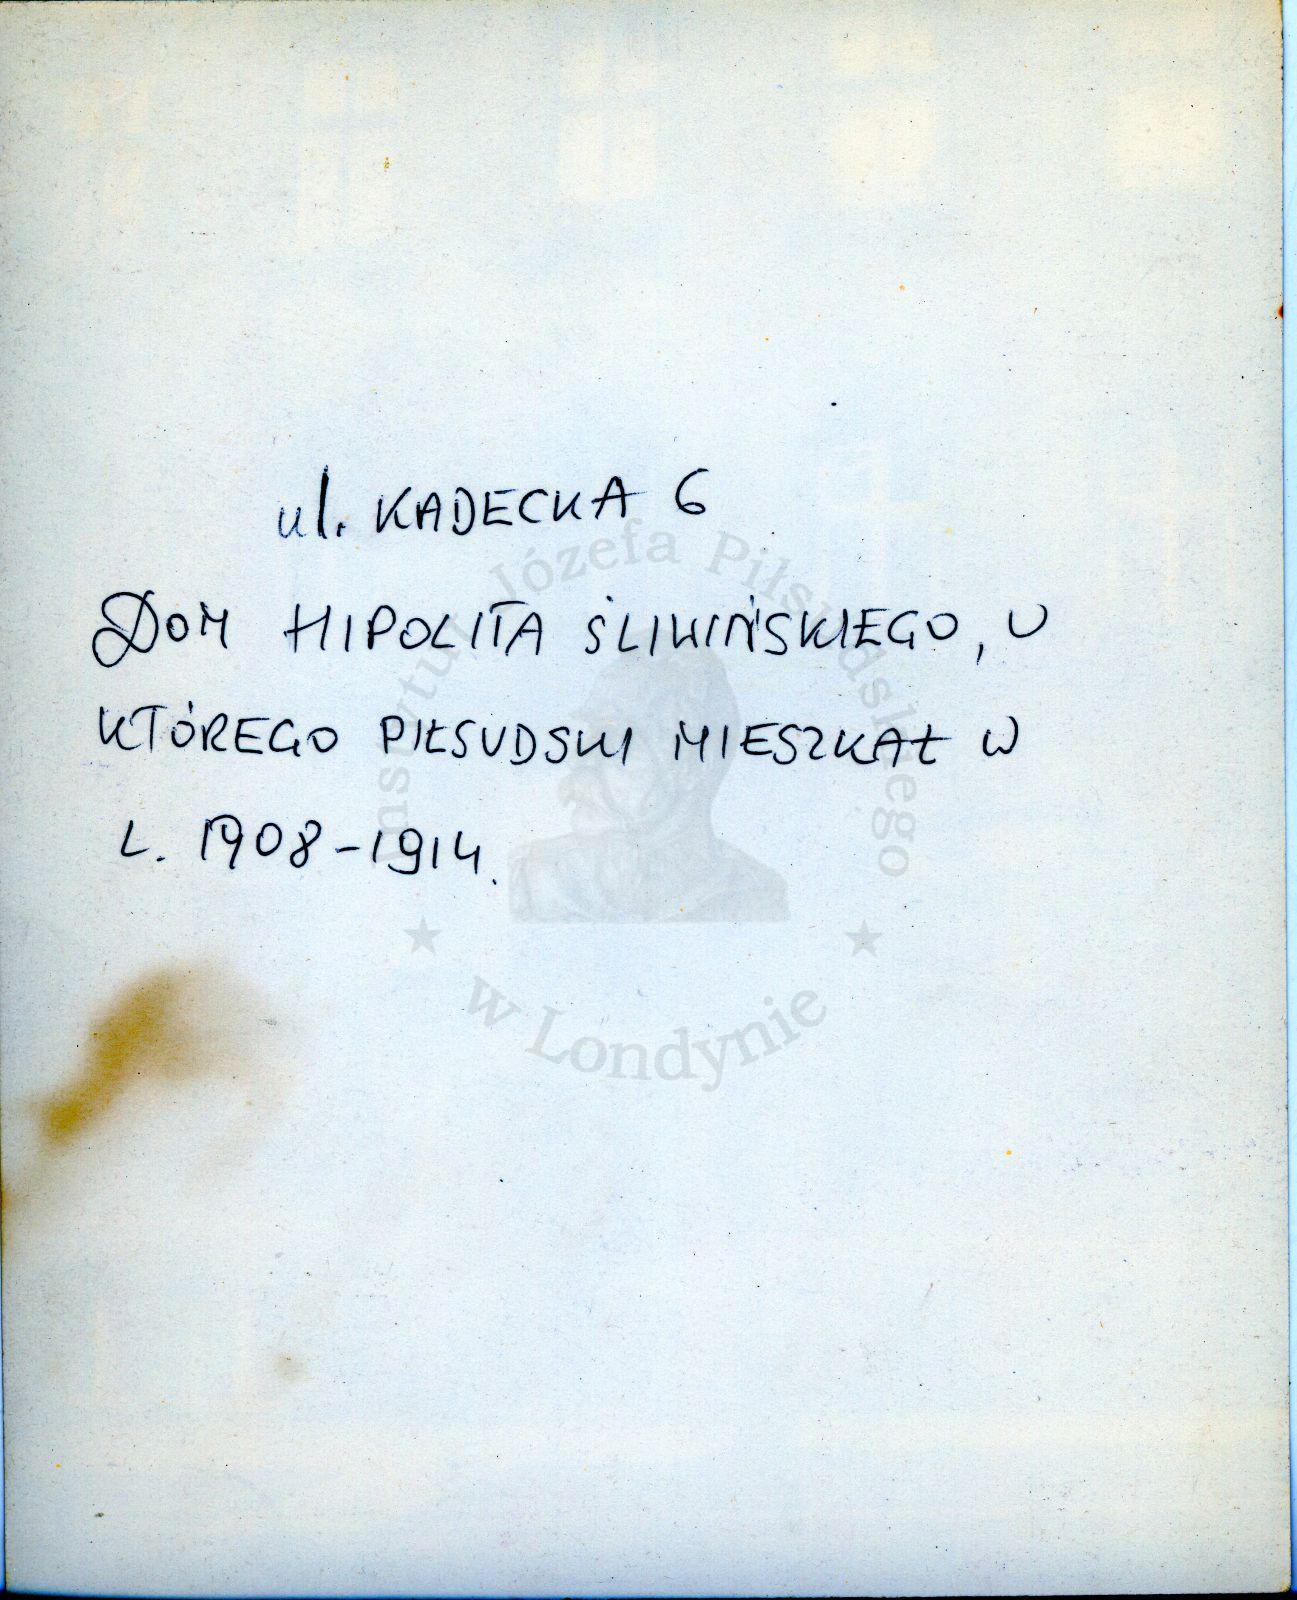 ul. KADECKA 6
DOM HIPOLITA ŚLIWIŃSKIEGO, U
KTÓREGO PIŁSUDSKI MIESZKAŁ W
L. 1908-1914.
Instytut Józefa Piłsudskiego
w Londynie